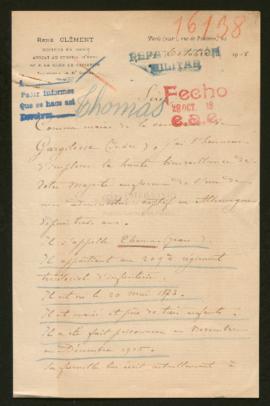 16138
René CLÉMENT
DOCTEUR EN DROIT
AVOCAT AU CONSEIL D'ÉTAT
ET A LA COUR DE CASSATION
Paris (XVIe), rue de
Octobre 1918
REPARTICION
MILITAR
Pedir informes
Que se haga así
Thomas
Sire
Fecho
28 OCT. 18
e.a.e.
Comme maire de la commune de
Gargilesse (Indre), j'ai l'honneur
d'implorer la haute bienveillance de
Votre Majesté en faveur de l'un de
mes captif en Allemagne
depuis trois ans.
Il s'appelle Thomas (Jean)
Il appartient au 209e régiment
territorial d'infanterie.
Il est né le 20 mai 1873.
Il est marié et père de trois enfants.
Il a été fait prisonnier en Novembre
ou Décembre 1915.
Sa famille lui écrit actuellement à